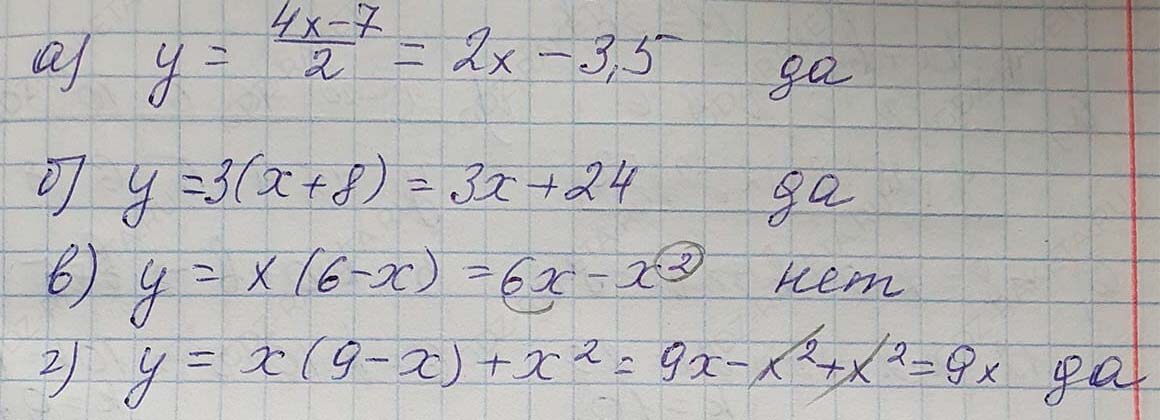 а) y = \frac{4x-7}{2} = 2x - 3,5 да
б) y = 3(x+8) = 3x + 24 да
в) y = x(6-x) = 6x - x² нет
г) y = x(9-x) + x² = 9x - x² + x² = 9x да